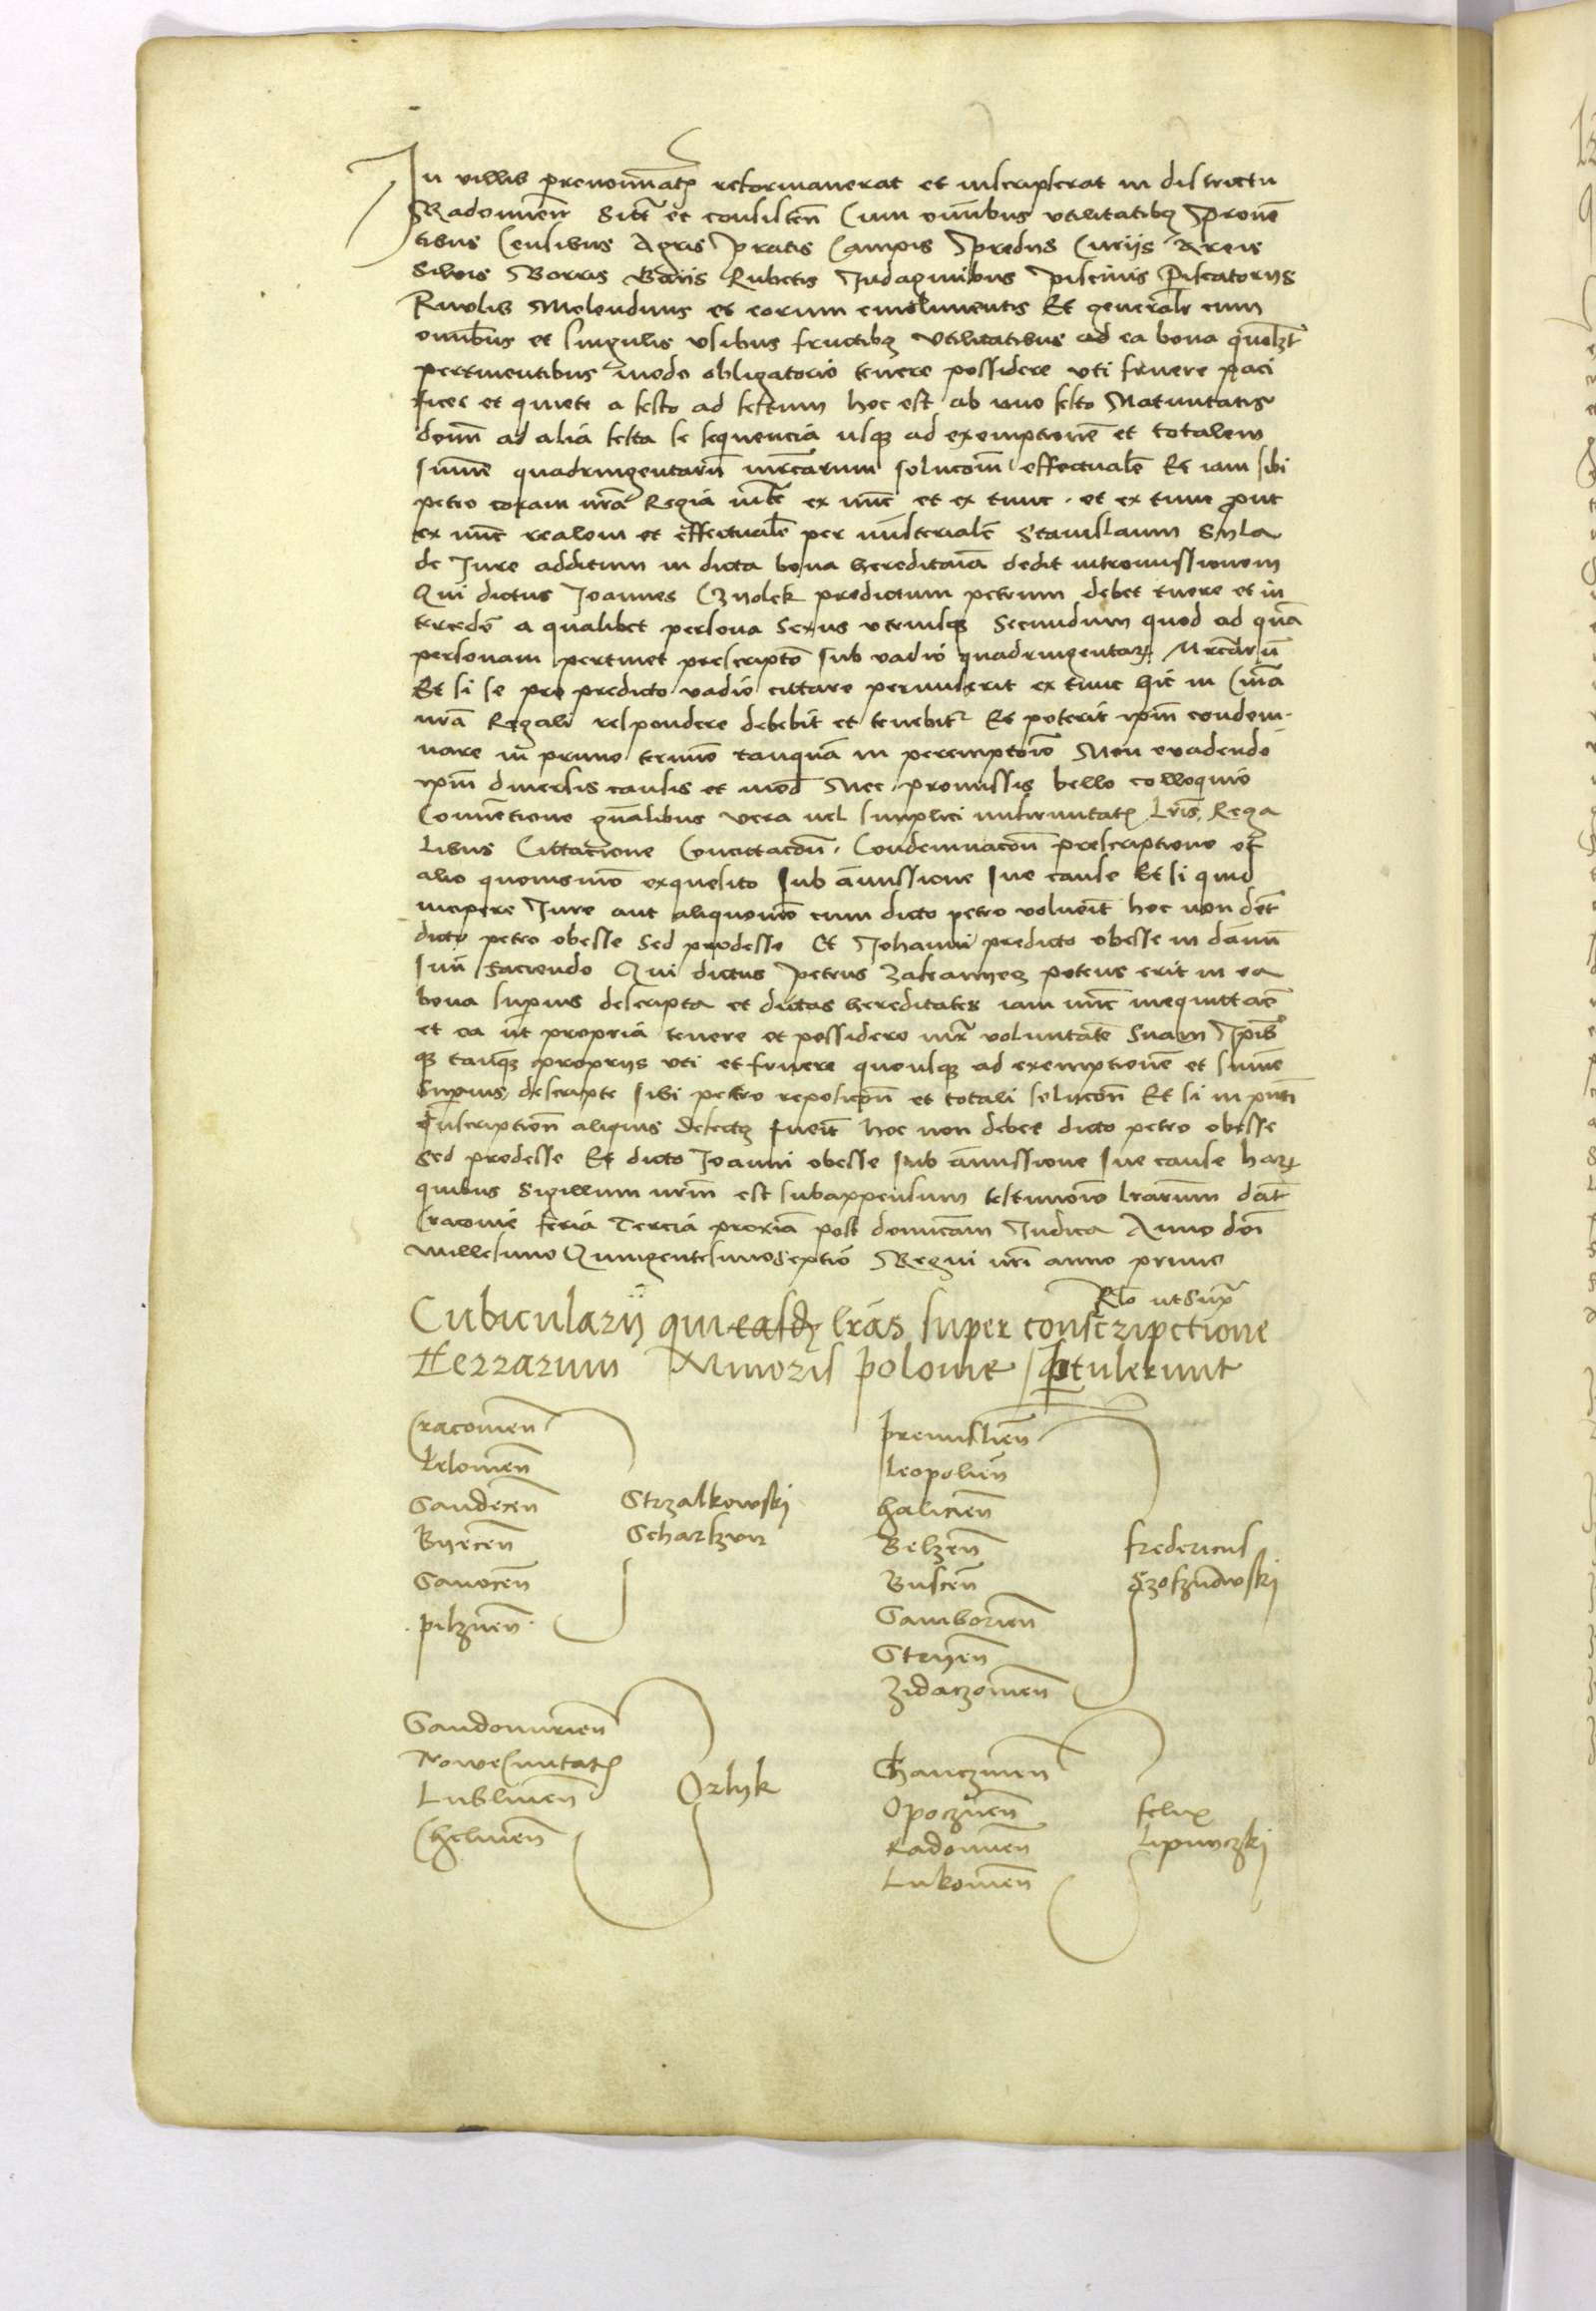 In villis prenominatis reformaverat et inscripserat in districtu
Radomien Sitis et consisten Cum omnibus utilitatibus Proven
tibus Censibus Agris Pratis Campis Prediis Curiis Areis
Silvis Borris Gaiis Rubetis Indaginibus piscinis Piscatoriis
Rivolis Molendinis et eorum emolumentis Et generalr cum
omnibus et singulis usibus fructibus Utilitatibus ad ea bona quomolzt
pertinentibus modo obligatorio tenere possidere uti fruere paci
fice et quiete a festo ad festum hoc est ab uno festo Nativitatis
domi ad alia festa se sequencia usque ad exemptione et totalem
summe quadringentarum mrcarum solucom effectuale Et iam sibi
petro coram nra Regia mte ex nunc et ex tunc et ex tunc prout
ex nunc realem et effectuale per ministeriale Stanislaum Syla
de Jure additum in dicta bona hereditaria dedit intromissionem
Qui dictus Joannes Czyolek predictum petrum debet tuere et in
tercede a qualibet persona Sexus utriusque Secundum quod ad qua
personam pertinet prescripto sub vadio quadringentarum Mrcarum
Et si se pro predicto vadio cittare permiserit ex tunc hic in Curia
nra Regali respondere debebit et tenebitur Et poterit ipm condem
nare in primo termino tanqua in peremptorio Non evadendo
ipm diversis causis et mod Nec promissis bello colloquio
Conventione gnalibus vera vel simplici infirmitatis Lris Rega
libus Cittacione Concittacon Condemnacon prescriptione et
alio quovismo exquesito sub amissione sue cause Et si quid
incipere Jure aut aliquomo cum dicto petro voluerit hoc non det
dicto petro obesse Sed prodesse Et Johanni predicto obesse in damn
suu faciendo Qui dictus Petrus potens erit in ea
bona superius descripta et dictas hereditates iam nunc inequittare
et ea ut propria tenere et possidere iuxta voluntate Suam Ipisque
tanquam propriis uti et fruere quousque ad exemptione et summe
Superius descripte sibi petro reposicon et totali solucon Et si in pnti
Inscription aliquis defectus fuerit hoc non debet dicto petro obesse
Sed prodesse Et dicto Joanni obesse sub amissione sue cause harum
quibus Sigillum nrm est subappensum testimonio lrarum dat
Cracovie feria Tercia proxima post dominicam Judica Anno doi
Millesimo Quingentesimoseptimo Regni nri anno primo
Rlo ut Supra
Cubicularii qui easdem lras super conscripctione
Terrarum Minoris polonie pertulerunt
Cracovien
Lelovien
Sandecen
Byecen
Sanocen
pilznen
Strzalkowski
Scharszyn
premislien
leopolien
halicien
Belzen
Buscen
Samborien
Stryen
Zidaczovien
fredericus
Sandomirien
Nowe Civitatis
Lublinen
Chelmen
Orlyk
Chanczinen
Opocznen
Radomien
Lukovien
felix
Lipniczki